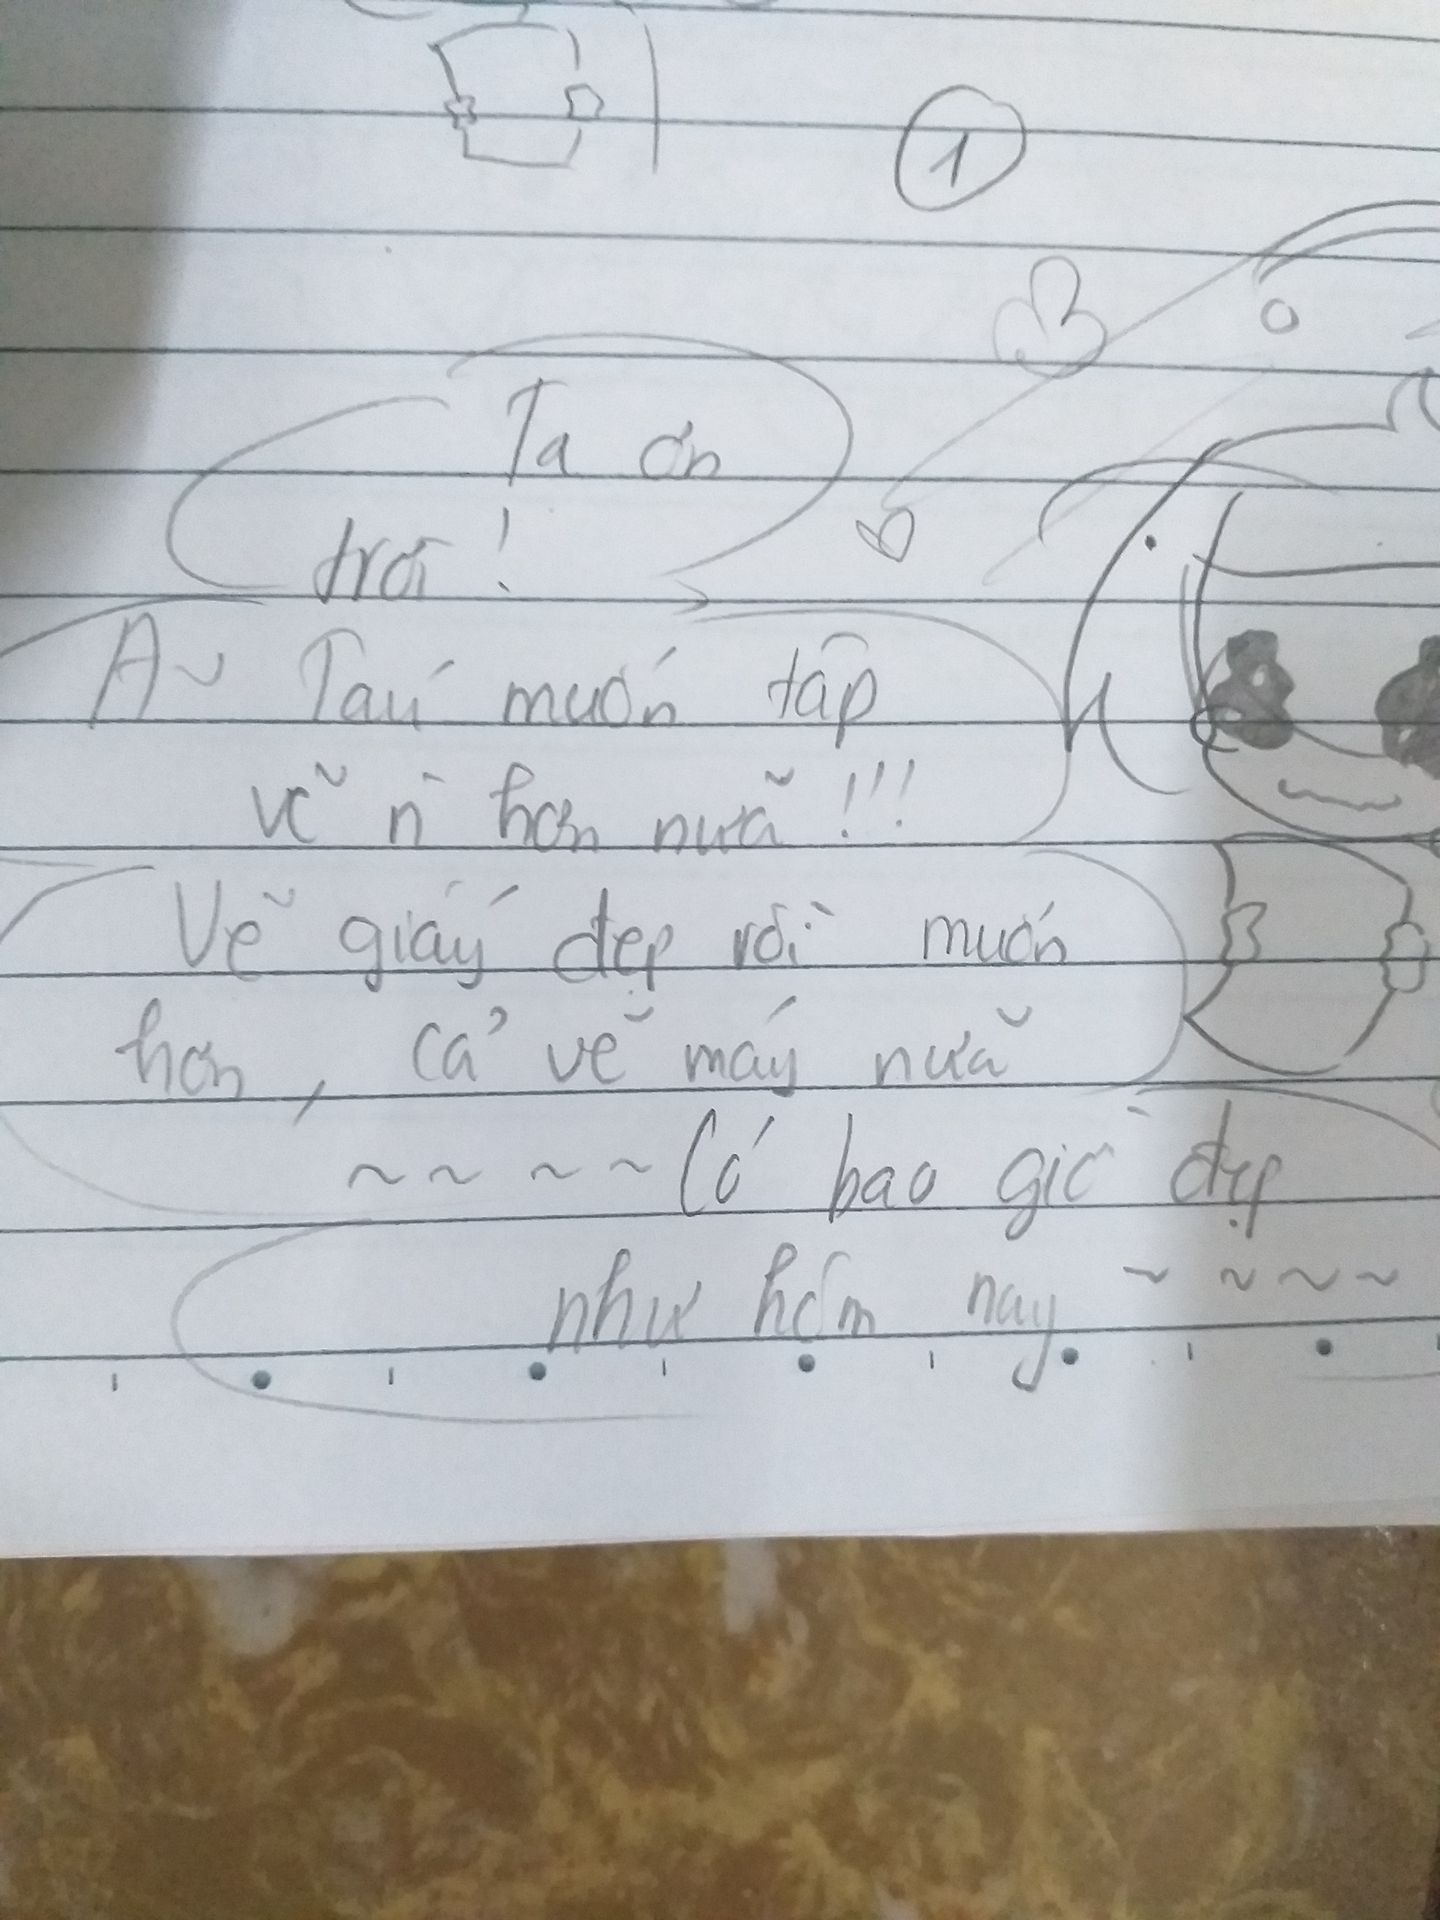 1
Ta ơn
trời!
A~ Tau muốn tập
vẽ n` hơn nữa!!!
Vẽ giấy đẹp rồi muốn
hơn, cả vẽ máy nữa
~ ~ ~ ~ Có bao giờ đẹp
như hôm nay ~ ~ ~ ~